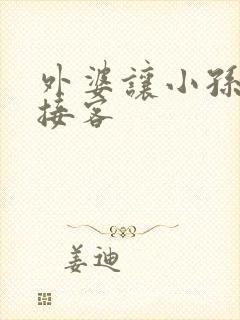 外婆讓小孫
接客
姜迪